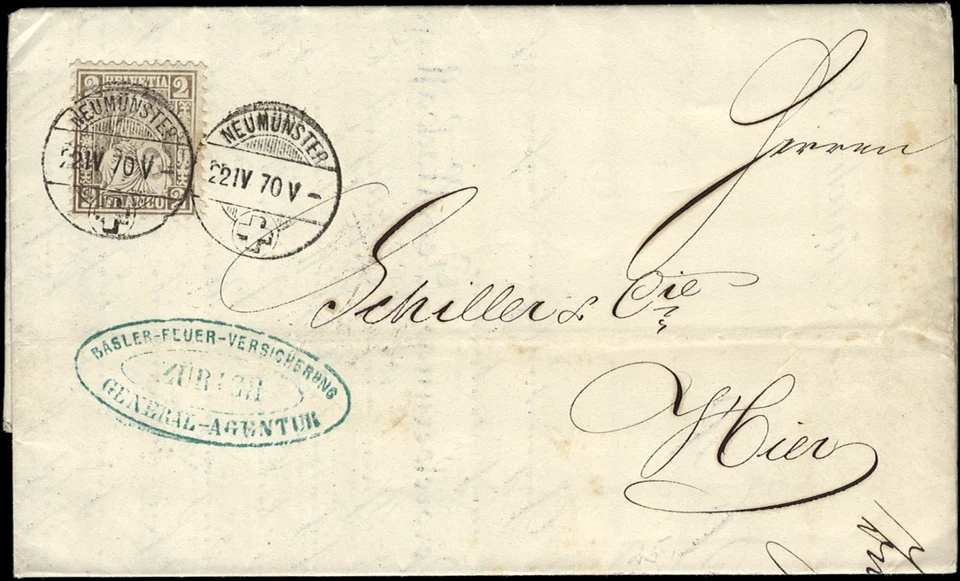 2 HELVETIA 2
2 FRANCO 2
NEUMÜNSTER
22 IV 70 V-
NEUMÜNSTER
22 IV 70 V-
Herren
Schiller & Cie
Hier
BASLER-FEUER-VERSICHERUNG
ZÜRICH
GENERAL-AGENTUR